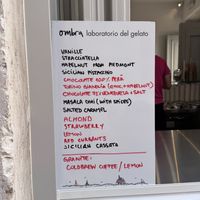 ombra laboratorio del gelato
VANILLE
STRACCIATELLA
HAZELNUT FROM PIEDMONT
SICILIAN PISTACHIO
CHOCOLATE 100% PERÙ
TORINO BIANCIA (CHOC + HAZELNUT)
CHOCOLATE 75% VENEZUELA + SALT
MASALA CHAI (WITH SPICES)
SALTED CARAMEL
ALMOND
STRAWBERRY
LEMON
RED CURRANTS
SICILIAN CASSATA
GRANITE:
COLDBREW COFFEE / LEMON